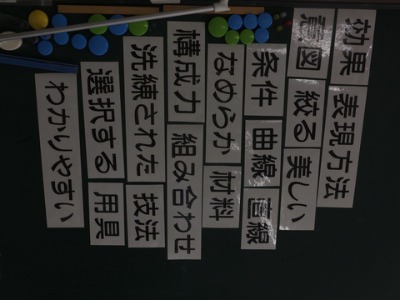 効果 表現方法
意図 絞る 美しい
条件 曲線 直線
なめらか 材料
構成力 組み合わせ
洗練された 技法
選択する 用具
わかりやすい